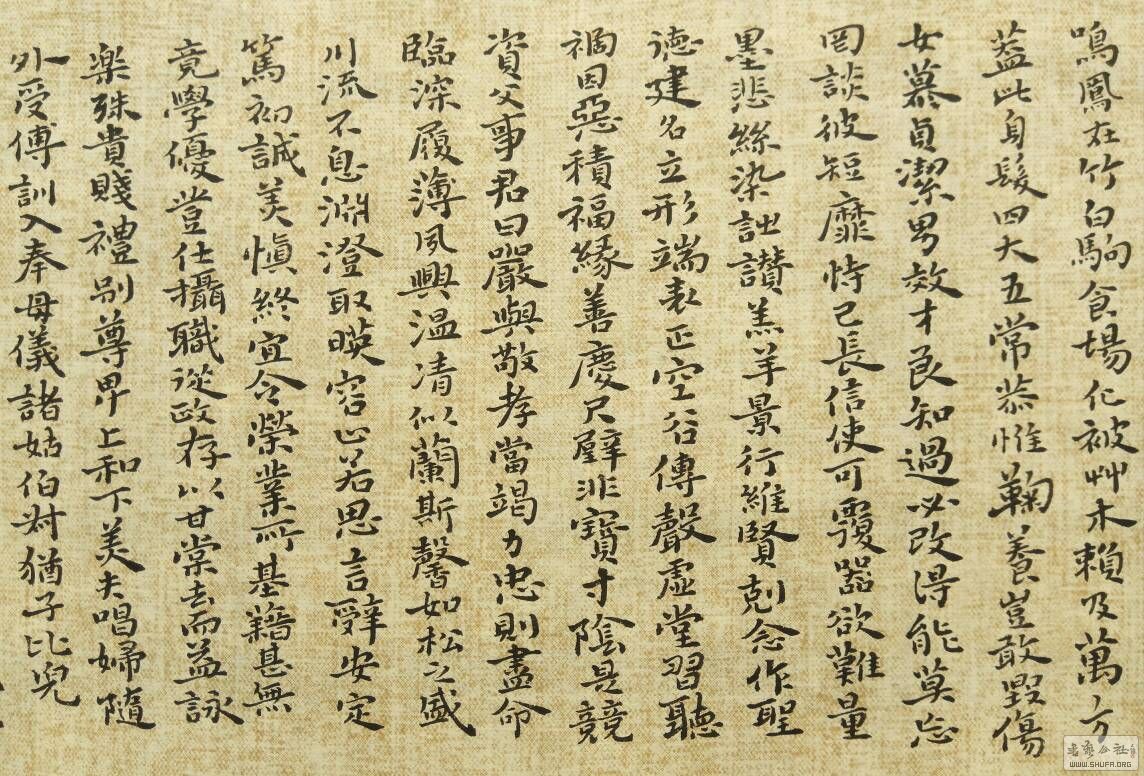 鳴鳳在竹白駒食場化被艸木賴及萬方
葢此身髮四大五常恭惟鞠養豈敢毀傷
女慕貞潔男效才良知過必改得能莫忘
罔談彼短靡恃己長信使可覆器欲難量
墨悲絲染詩讚羔羊景行維賢剋念作聖
德建名立形端表正空谷傳聲虛堂習聽
禍因惡積福緣善慶尺璧非寶寸陰是競
資父事君曰嚴與敬孝當竭力忠則盡命
臨深履薄夙興温凊似蘭斯馨如松之盛
川流不息淵澄取暎容止若思言辭安定
篤初誠美慎終宜令榮業所基藉甚無
竟學優登仕攝職從政存以甘棠去而益詠
樂殊貴賤禮别尊卑上和下美夫唱婦隨
外受傅訓入奉母儀諸姑伯叔猶子比兒
書象公社
WWW.SHUFA.ORG